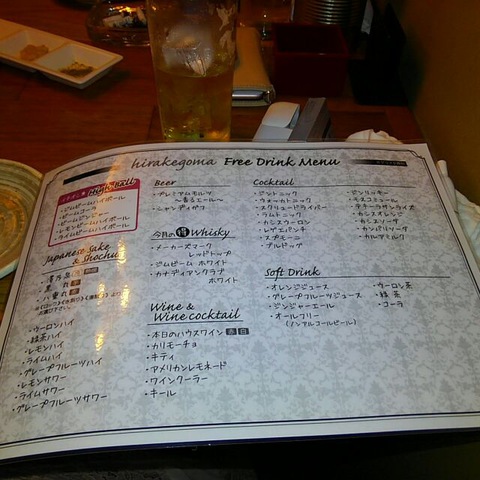 hirakegoma Free Drink Menu
High-Ball
・ジムビームハイボール
・ビームコーラ
・ビームジンジャー
・レモンビームハイボール
・ライムビームハイボール
Japanese Sake
& Shochu
・ウーロンハイ
・緑茶ハイ
・レモンハイ
・ライムハイ
・グレープフルーツハイ
・レモンサワー
・ライムサワー
・グレープフルーツサワー
Beer
・プレミアムモルツ
～香るエール～
・シャンディガフ
今月の Whisky
・メーカーズマーク
レッドトップ
・ジムビーム ホワイト
・カナディアンクラブ
ホワイト
Wine &
Wine cocktail
・本日のハウスワイン 赤 白
・カリモーチョ
・キティ
・アメリカンレモネード
・ワインクーラー
・キール
Cocktail
・ジントニック
・ウォッカトニック
・スクリュードライバー
・ラムトニック
・カシスウーロン
・レゲエパンチ
・スプモーニ
・ブルドッグ
・ジンリッキー
・モスコミュール
・テキーラサンライズ
・カシスオレンジ
・カシスソーダ
・カンパリソーダ
・カルアミルク
Soft Drink
・オレンジジュース
・グレープフルーツジュース
・ジンジャーエール
・オールフリー
(ノンアルコールビール)
・ウーロン茶
・緑茶
・コーラ